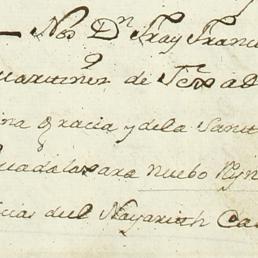 Nos Dn Fray Franc
Martinez de Texad
ina Gracia y de la Sant
Guadalaxara Nuebo Ryn
icias del Nayarith Ca